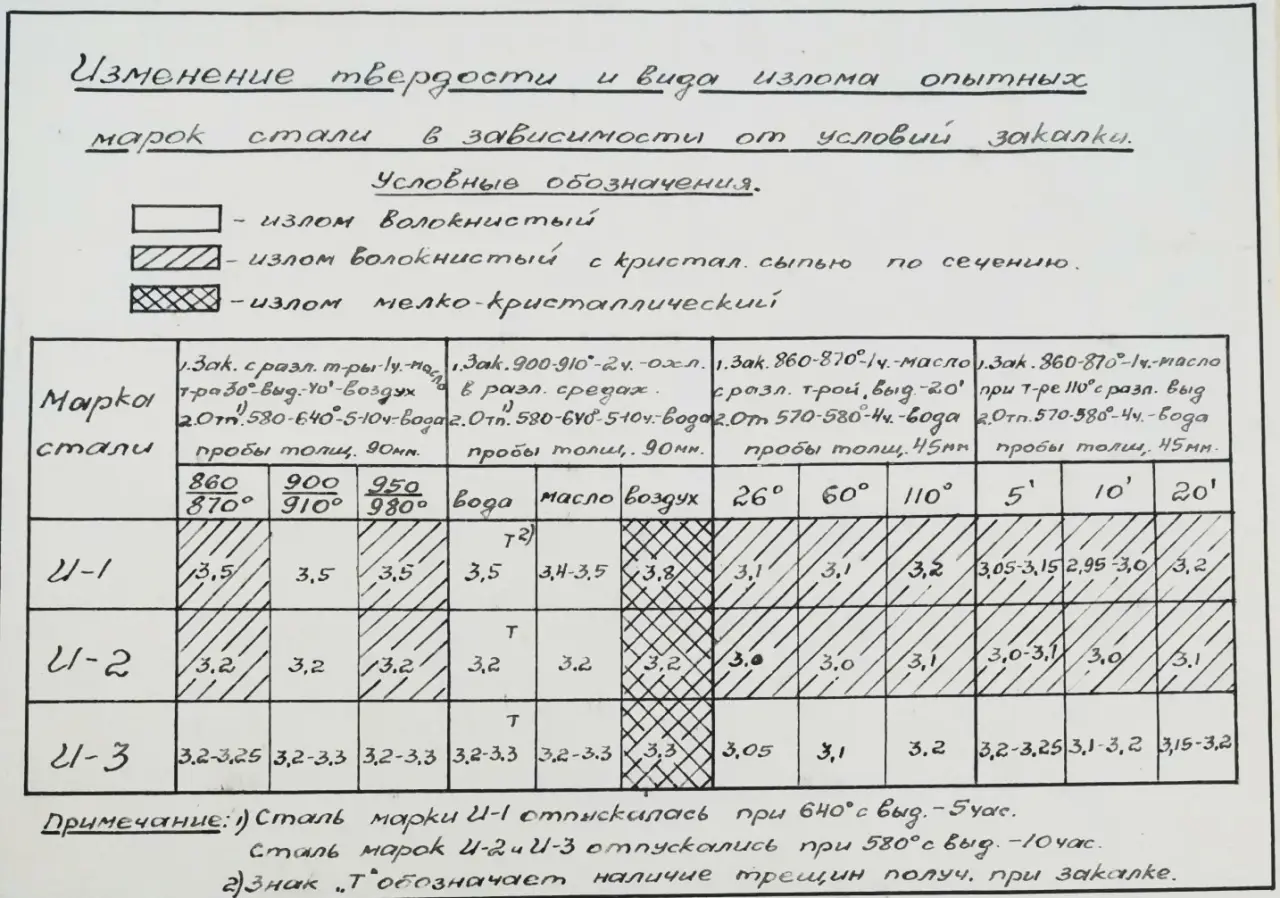 Изменение твердости и вида излома опытных
марок стали в зависимости от условий закалки.
Условные обозначения.
- излом волокнистый
- излом волокнистый с кристал. сыпью по сечению.
- излом мелко-кристаллический
Марка стали
1. Зак. с разл. т-ры-1ч.-масло
т-ра 30°-выд.-40'-воздух
2. Отп.¹⁾ 580-640°-5-10ч.-вода
пробы толщ. 90мм.
1. Зак. 900-910°-2ч.-охл.
в разл. средах.
2. Отп.¹⁾ 580-640°-5-10ч.-вода
пробы толщ. 90мм.
1. Зак. 860-870°-1ч.-масло
с разл. т-рой, выд.-20'
2. От 570-580°-4ч.-вода
пробы толщ. 45мм
1. Зак. 860-870°-1ч.-масло
при т-ре 110° с разл. выд
2. Отп. 570-580°-4ч.-вода
пробы толщ. 45мм.
860/870° 900/910° 950/980° вода масло воздух 26° 60° 110° 5' 10' 20'
И-1 3,5 3,5 3,5 3,5 Т²⁾ 3,4-3,5 3,8 3,1 3,1 3,2 3,05-3,15 2,95-3,0 3,2
И-2 3,2 3,2 3,2 3,2 Т 3.2 3,2 3.0 3,0 3,1 3,0-3,1 3,0 3,1
И-3 3,2-3,25 3,2-3,3 3,2-3,3 3,2-3,3 Т 3,2-3,3 3,3 3,05 3,1 3.2 3,2-3,25 3,1-3,2 3,15-3,2
Примечание: 1) Сталь марки И-1 отпускалась при 640° с выд. - 5час.
Сталь марок И-2 и И-3 отпускались при 580° с выд. - 10час.
2) Знак „Т" обозначает наличие трещин получ. при закалке.